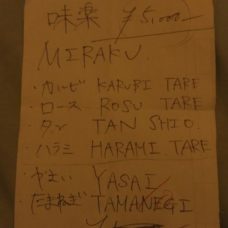 味楽 ¥5,000—
MIRAKU
・カルビ KARUBI TARE
・ロース ROSU TARE
・タン TAN SHIO
・ハラミ HARAMI TARE
・やさい YASAI
・たまねぎ TAMANEGI